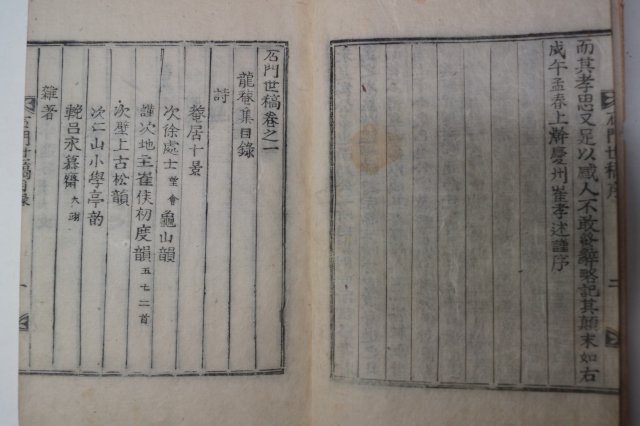 而其孝思又足以感人不敢終辭略記其顛末如右
戊午孟春上澣慶州崔孝述謹序
石門世稿序
二
石門世稿卷之一
龍菴集目錄
詩
菴居十景
次徐處士 堂會 龜山韻
謹次地主崔侯初度韻 五七二首
次壁上古松韻
次仁山小學亭韵
輓呂永慕齋 大翊
雜著
石門世稿目錄
一